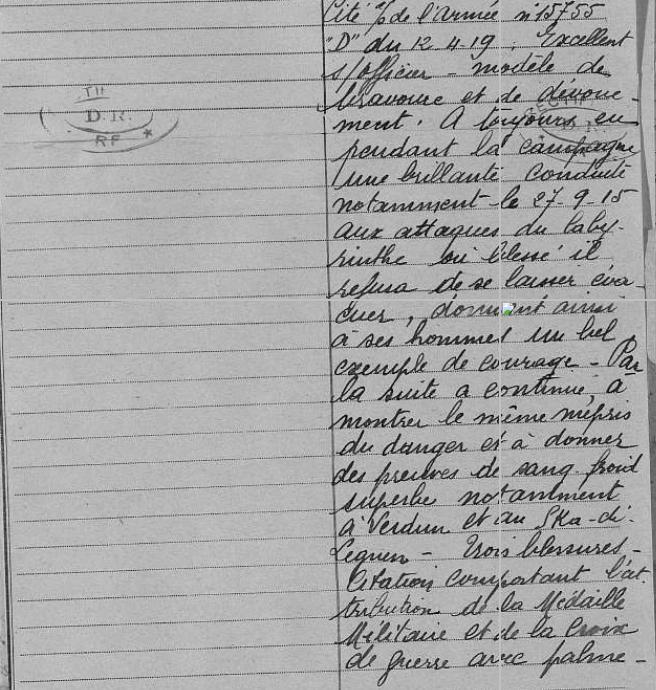 Cité à de l'Armée n°15755
"D" du 12.4.19. Excellent
s/officier - modèle de
bravoure et de dévoue-
ment. A toujours eu
pendant la campagne
une brillante conduite
notamment le 27-9-15
aux attaques du laby-
rinthe où blessé il
refusa de se laisser éva-
cuer, donnant ainsi
à ses hommes un bel
exemple de courage - Par
la suite a continué à
montrer le même mépris
du danger et à donner
des preuves de sang froid
superbe notamment
à Verdun et au Ska-di-
Legnen - Trois blessures -
Citation comportant l'at-
tribution de la Médaille
Militaire et de la Croix
de guerre avec palme -
D.R.
RF *